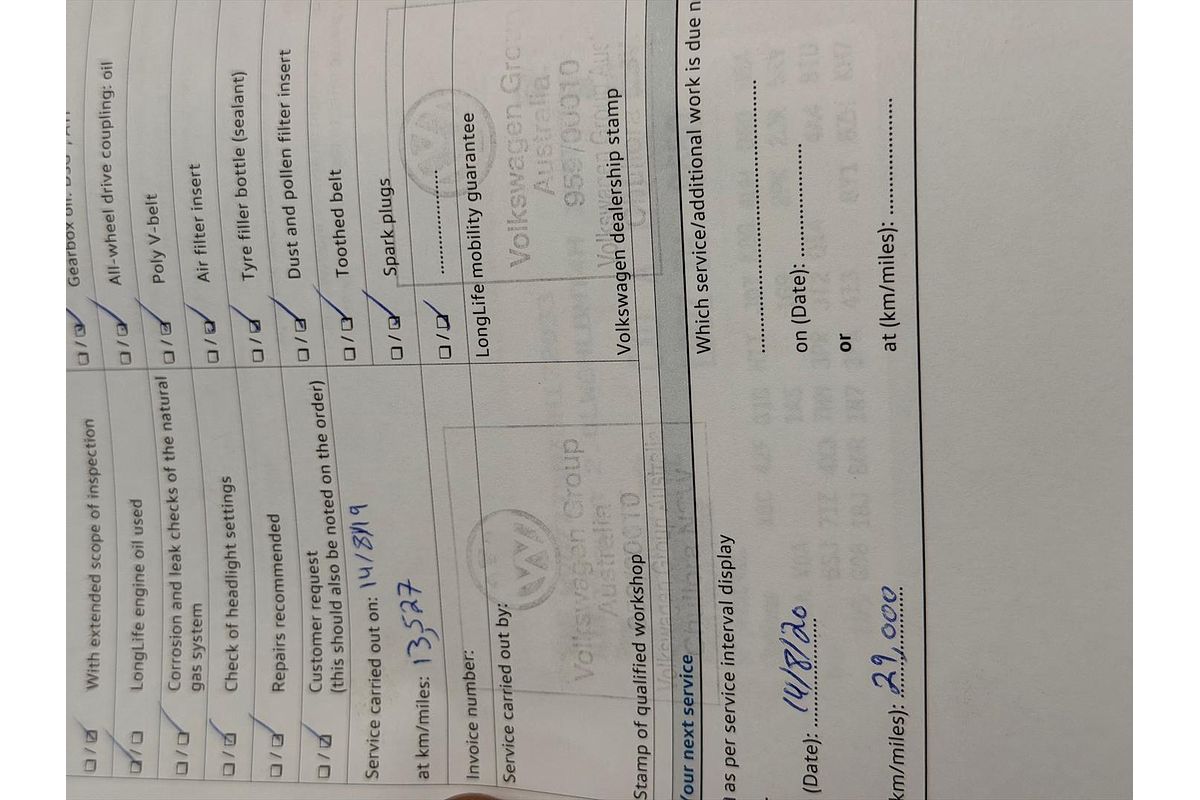 ☐ / ☑ With extended scope of inspection
☑ / ☐ LongLife engine oil used
☐ / ☑ Corrosion and leak checks of the natural
gas system
☐ / ☑ Check of headlight settings
☐ / ☑ Repairs recommended
☐ / ☑ Customer request
(this should also be noted on the order)
Service carried out on: 14/8/19
at km/miles: 13,527
Invoice number:
Service carried out by:
Volkswagen Group
Australia
Volkswagen Group Australia
Stamp of qualified workshop
☐ / ☑ Gearbox oil:
☐ / ☑ All-wheel drive coupling: oil
☐ / ☑ Poly V-belt
☐ / ☑ Air filter insert
☐ / ☑ Tyre filler bottle (sealant)
☐ / ☑ Dust and pollen filter insert
☐ / ☑ Toothed belt
☐ / ☑ Spark plugs
☐ / ☑ ....................
LongLife mobility guarantee
Australia
959/00010
Volkswagen dealership stamp
Your next service
as per service interval display
(Date): 14/8/20
km/miles): 29,000
Which service/additional work is due
on (Date): ....................
or
at (km/miles): ....................